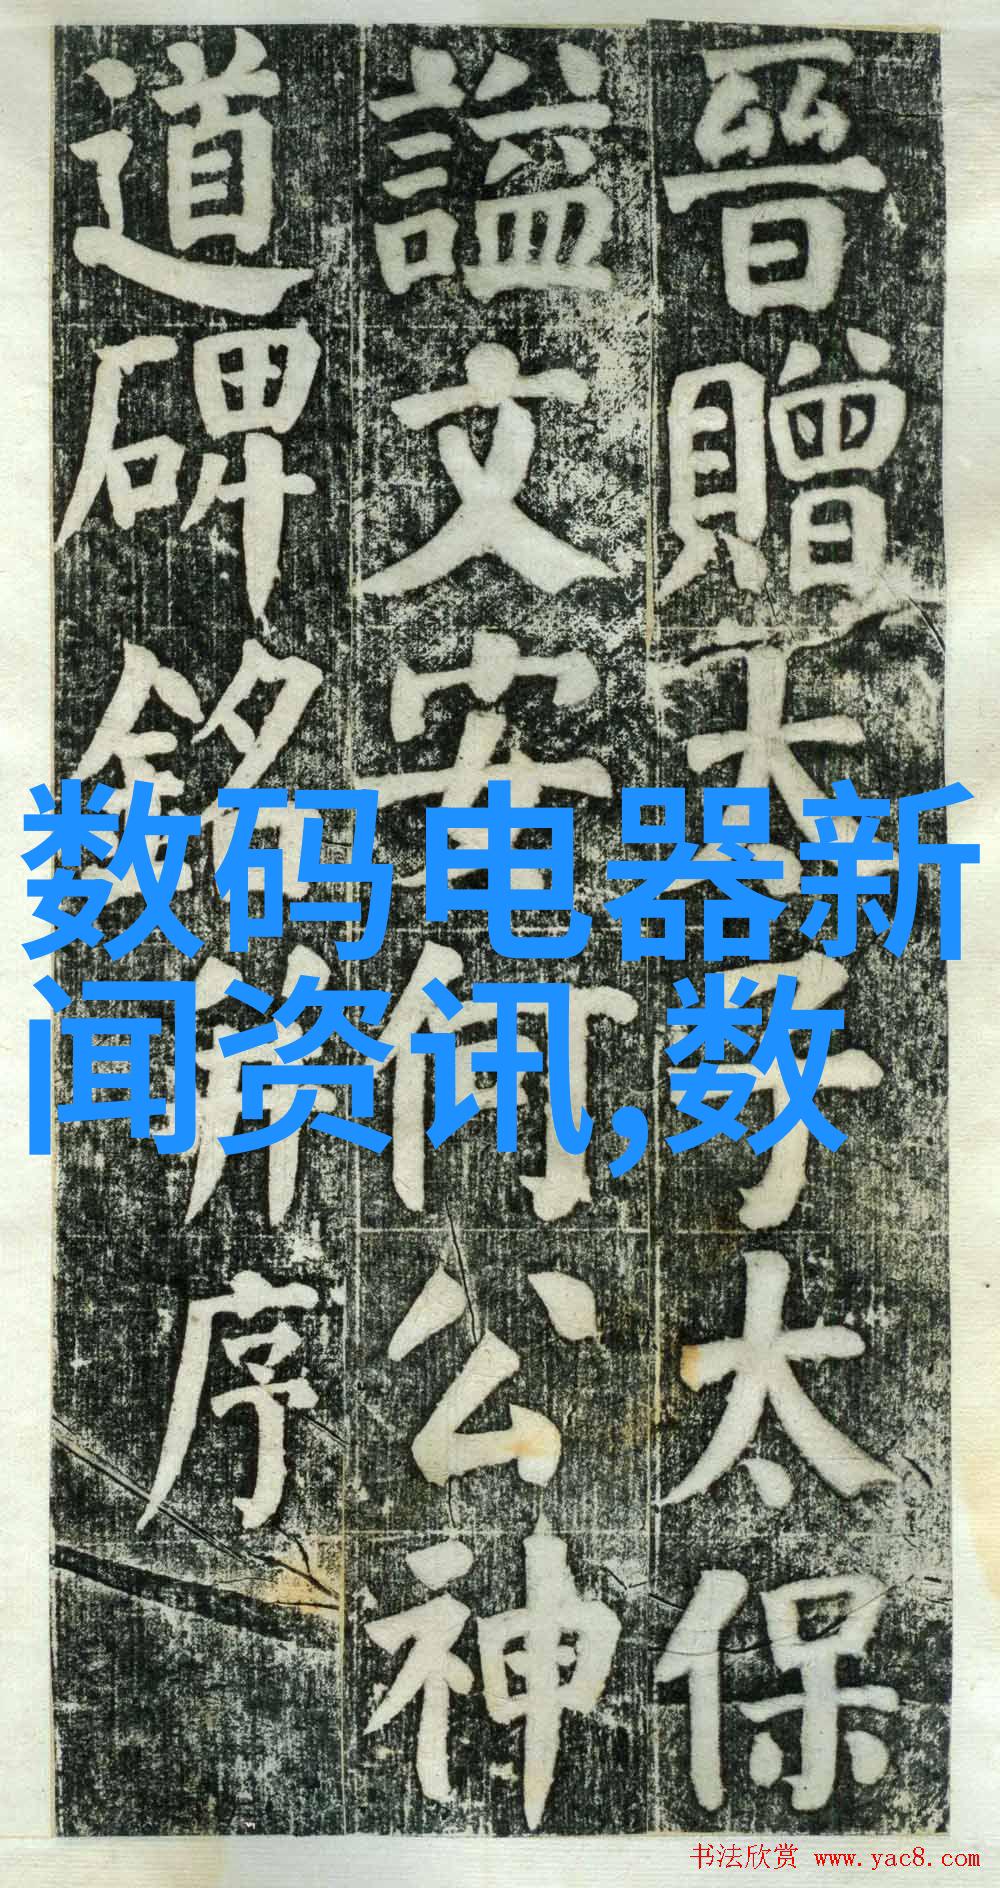 晉贈太子太保
謚文安何公神
道碑銘并序
数码电器新
闻资讯,数
书法欣赏 www.yac8.com